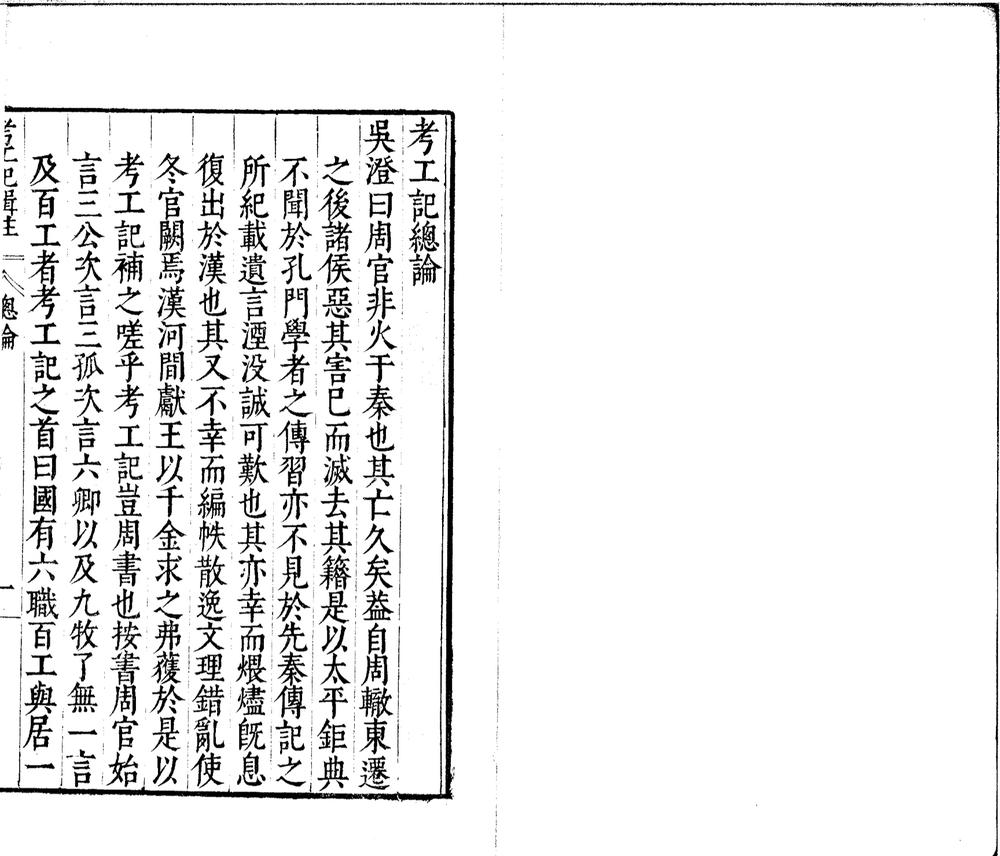 考工記總論
吳澄曰周官非火于秦也其亡久矣葢自周轍東遷
之後諸侯惡其害已而滅去其籍是以太平鉅典
不聞於孔門學者之傳習亦不見於先秦傳記之
所紀載遺言湮没誠可歎也其亦幸而煨燼旣息
復出於漢也其又不幸而編帙散逸文理錯亂使
冬官闕焉漢河間獻王以千金求之弗獲於是以
考工記補之嗟乎考工記豈周書也按書周官始
言三公次言三孤次言六卿以及九牧了無一言
及百工者考工記之首曰國有六職百工與居一
考工記輯註 總論 一